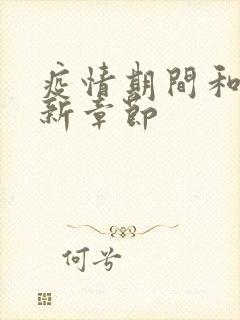 疫情期間和
新章節
何兮